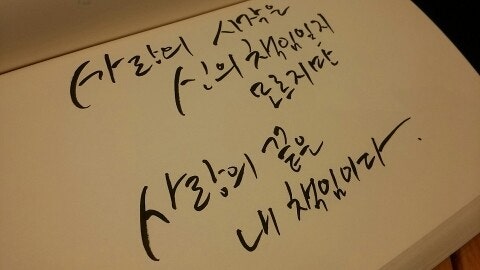 사랑의 시작은
신의 책임일지
모르지만
사랑의 끝은
내 책임이다.